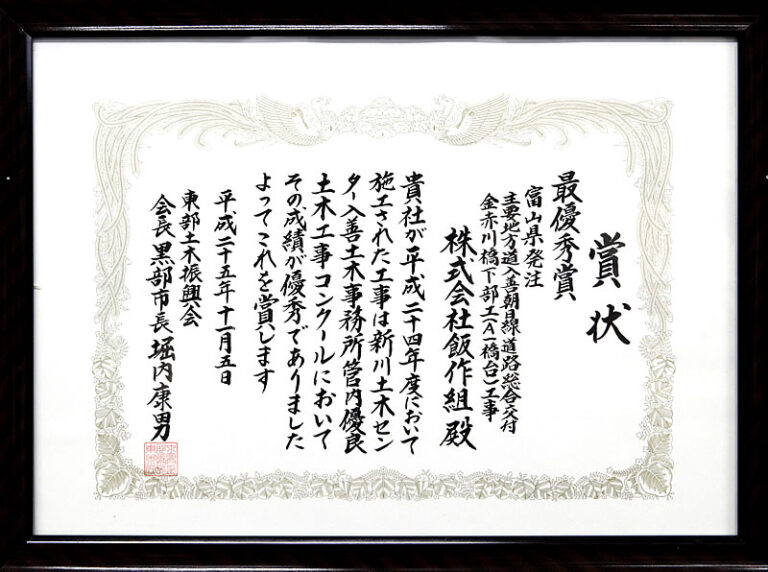 賞状
最優秀賞
富山県発注
主要地方道入善朝日線道路総合交付
金赤川橋下部工(A一橋台)工事
株式会社飯作組殿
貴社が平成二十四年度において
施工された工事は新川土木セン
ター入善土木事務所管内優良
土木工事コンクールにおいて
その成績が優秀でありました
よってこれを賞します
平成二十五年十一月五日
東部土木振興会
会長黒部市長堀内康男